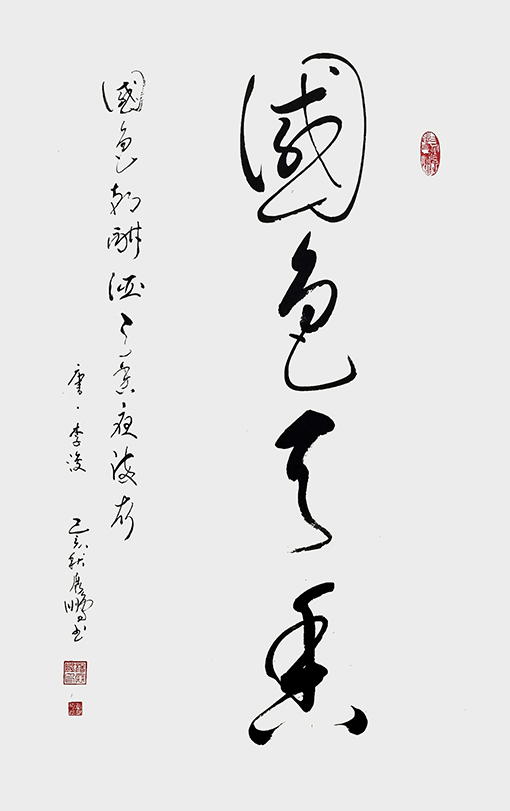 國色天香
國色朝酣酒天香夜染衣
唐·李浚
己亥秋書